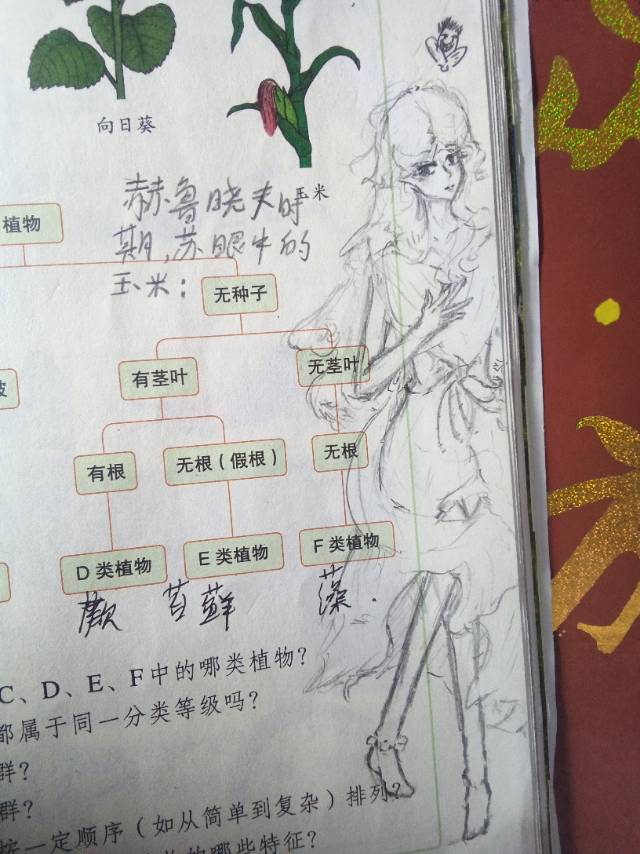 向日葵
玉米
赫鲁晓夫时
期,苏眼中的
玉米:
植物
无种子
有茎叶
无茎叶
有根
无根(假根)
无根
D 类植物
E 类植物
F 类植物
蕨
苔藓
藻.
C、D、E、F中的哪类植物?
都属于同一分类等级吗?
群?
群?
按一定顺序(如从简单到复杂)排列?
的哪些特征?